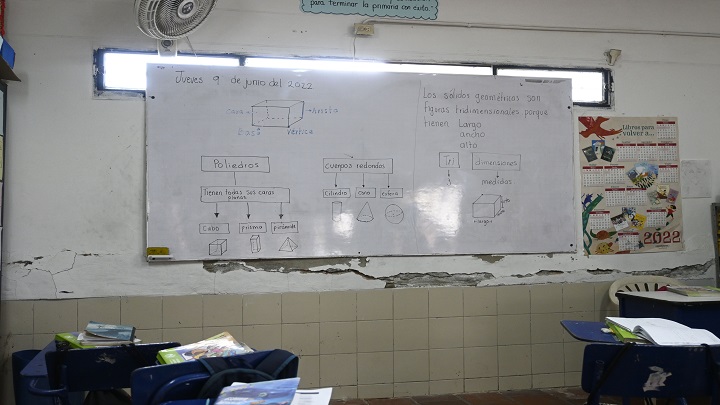 para terminar la primaria con éxito."
Jueves 9 de junio del 2022
Cara
Arista
Base
Vértice
Los sólidos geométricos son
figuras tridimensionales porque
tienen largo
ancho
alto
Poliedros
Tienen todas sus caras
planas
Cubo prisma pirámide
cuerpos redondos
cilindro cono esfera
Tri dimensiones
3 medidas
Libros para
volver a...
2022